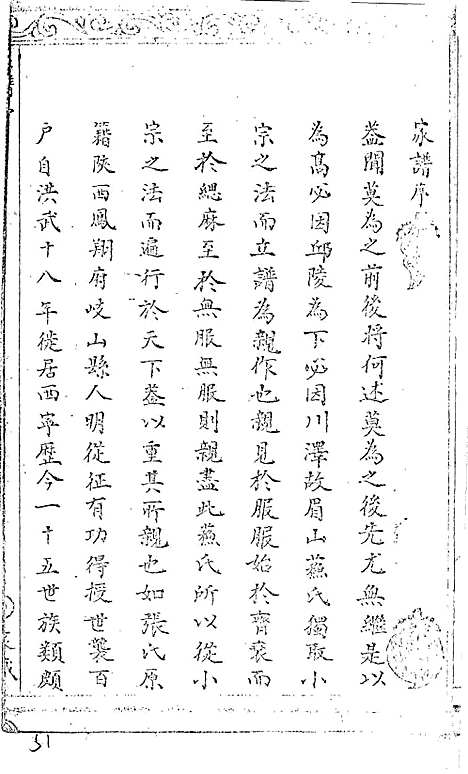 家譜序
葢聞莫為之前後將何述莫為之後先尤無繼是以
為髙必因邱陵為下必因川澤故眉山蘓氏獨取小
宗之法而立譜為親作也親見於服服始於齊衰而
至於緦麻至於無服無服則親盡此蘓氏所以從小
宗之法而遍行於天下葢以重其所親也如張氏原
籍陜西鳳翔府岐山縣人明從征有功得授世襲百
户自洪武十八年徙居西寧歷今一十五世族類頗
31